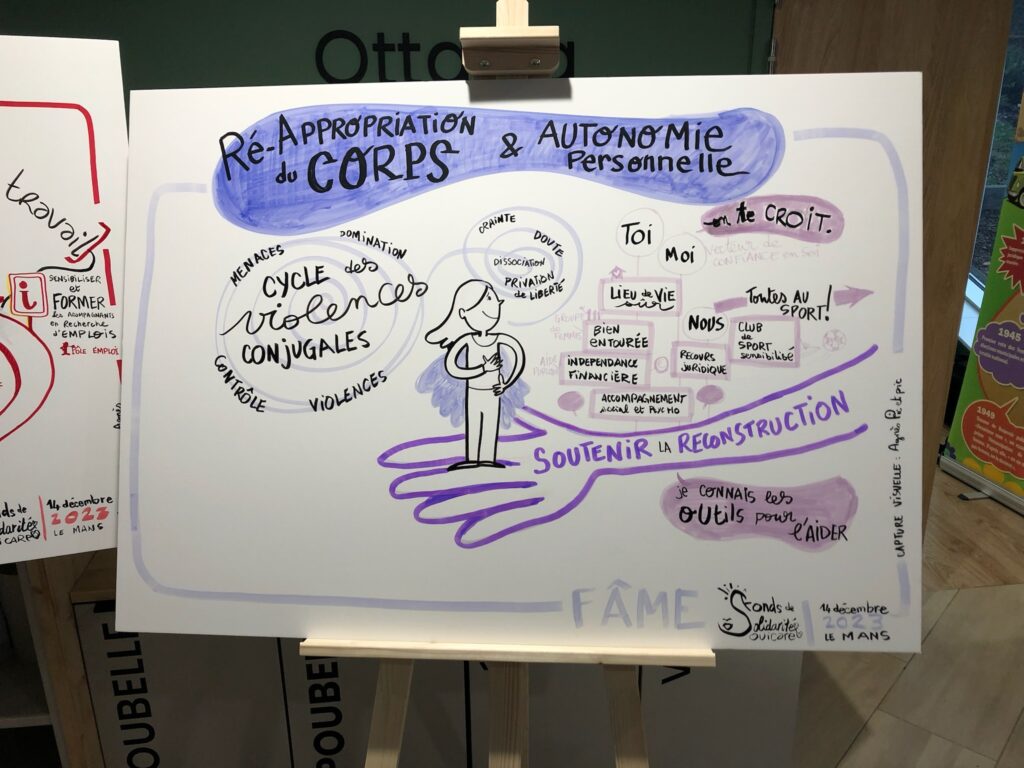 Ottawa
travail
SENSIBILISER
et
FORMER
les ACOMPAGNANTS
en Recherche
d'EMPLOIS
PÔLE EMPLOI
14 décembre
2023
LE MANS
Ré-APPROPRIATION
du CORPS
& AUTONOMIE
Personnelle
MENACES
DOMINATION
CYCLE des
violences
CONJUGALES
CONTRÔLE
VIOLENCES
CRAINTE
DOUTE
DISSOCIATION
PRIVATION
de LIBERTÉ
Toi
Moi
on te CROIT.
vecteur de
CONFIANCE en soi
LIEU de VIE
sûr
Toutes AU
SPORT!
GROUPE
de Femmes
BIEN
entourée
NOUS
CLUB
de
SPORT
sensibilisé
INDEPENDANCE
FINANCIÈRE
RECOURS
JURIDIQUE
ACCOMPAGNEMENT
social et psycho
SOUTENIR LA RECONSTRUCTION
je CONNAIS les
OUTILS pour
l'AIDER
CAPTURE VISUELLE : Agnès Pic et pic
FÂME
Fonds de
Solidarité
OUICARE
14 décembre
2023
LE MANS
POUBELLE
POUBEL
1945
1949